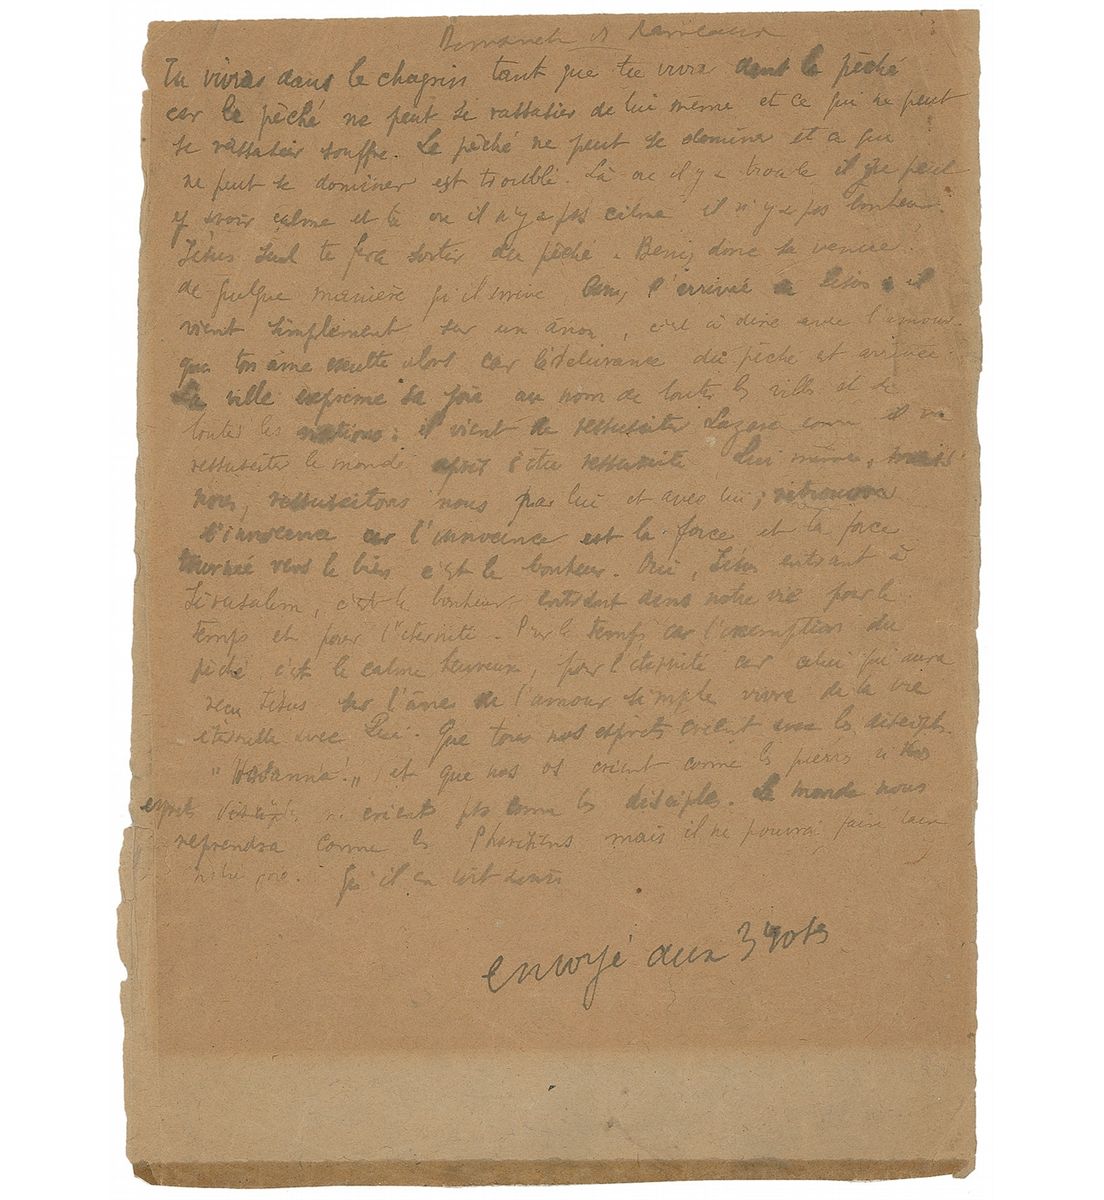 Dimanche des Rameaux
Tu vivras dans le chagrin tant que tu vivra dans le péché
car le pêché ne peut se rassasier de lui même et ce qui ne peut
se rassasier souffre. Le pêché ne peut se dominer et ce qui
ne peut se dominer est troublé. Là ou il y a trouble il ne peut
y avoir calme et là ou il n'y a pas calme il n'y a pas bonheur.
Jésus seul te fera sortir du pêché. Benis donc sa venue
de quelque manière qu'il arrive. l'arrivée de Jésus : il
vient simplement sur un ânon, c'est à dire avec l'amour.
que ton âme exulte alors car la délivrance du pêché est arrivée.
La ville exprime sa joie au nom de toutes les villes et de
toutes les nations : il vient de ressusciter Lazare comme il va
ressusciter le monde après être ressuscité Lui même,
nous, ressuscitons nous par lui et avec lui ; retrouvons
l'innocence car l'innocence est la force et la force
tournée vers le bien c'est le bonheur. Oui, Jésus entrant à
Jérusalem, c'est le bonheur entrant dans notre vie pour le
temps et pour l'éternité. Pour le temps car l'exemption du
pêché c'est le calme heureux, pour l'éternité car celui qui aura
reçu Jésus sur l'ânes de l'amour simple vivra de la vie
éternelle avec Lui. Que tous nos esprits crient avec les disciples
"Hosanna!" et que nos os crient comme les pierres si nos
esprits ne crient pas comme les disciples. Le monde nous
reprendra comme les Pharisiens mais il ne pourra faire taire
notre joie. Qu'il en soit
envoyé aux 3